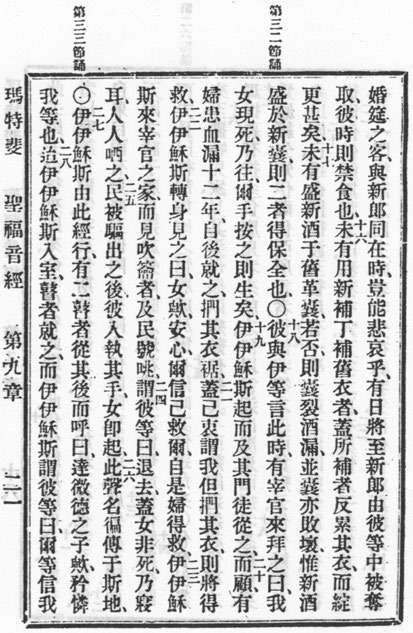 第三二節誦
第三三節誦
婚筵之客與新郎同在時、豈能悲哀乎、有日將至、新郎由彼等中被奪
取、彼時則禁食也、十六未有用新補丁補舊衣者、蓋所補者反累其衣、而綻
更甚矣、十七未有盛新酒于舊革囊、若否、則囊裂酒漏、並囊亦敗壞、惟新酒
盛於新囊、則二者得保全也、〇十八彼與伊等言此時、有宰官來拜之曰、我
女現死、乃往爾手按之則生矣、十九伊伊穌斯起、而及其門徒從之、二十而顧有
婦患血漏十二年、自後就之、捫其衣裾、二一蓋己衷謂我但捫其衣、則將得
救、二二伊伊穌斯轉身見之曰、女歟、安心、爾信己救爾、自是婦得救、二三伊伊穌
斯來宰官之家、而見吹籥者及民號咷、二四謂彼等曰、退去、蓋女非死、乃寢
耳、人人哂之、二五民被驅出之後、彼入執其手、女卽起、二六此聲名徧傳于斯地、
〇二七伊伊穌斯由此經行、有二瞽者從其後而呼曰、達微德之子歟、矜憐
我等也、二八迨伊伊穌斯入室、瞽者就之、而伊伊穌斯謂彼等曰、爾等信我
瑪特斐 聖福音經 第九章 二一